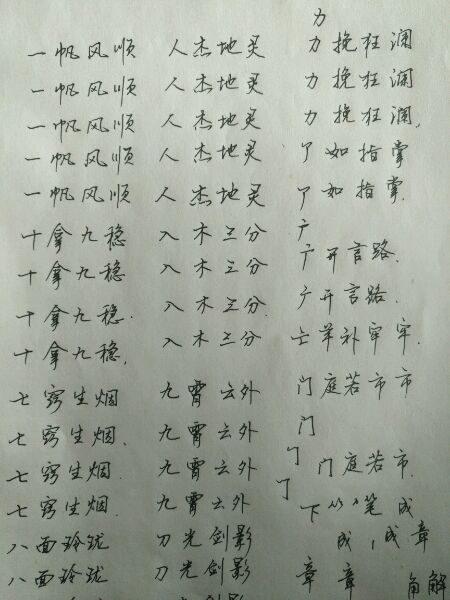 力
一帆风顺 人杰地灵 力挽狂澜
一帆风顺 人杰地灵 力挽狂澜
一帆风顺 人杰地灵 力挽狂澜.
一帆风顺 人杰地灵 了如指掌
一帆风顺 人杰地灵 了如指掌.
十拿九稳 入木三分 广
十拿九稳 入木三分 广开言路.
十拿九稳. 入木三分. 广开言路.
十拿九稳. 入木三分 亡羊补牢牢.
七窍生烟 九霄云外 门庭若市市
七窍生烟. 九霄云外 门
七窍生烟. 九霄云外 门庭若市.
七窍生烟. 九霄云外 下 笔 成
八面玲珑 刀光剑影 成 成章
八面玲珑 刀光剑影 章 章 角解